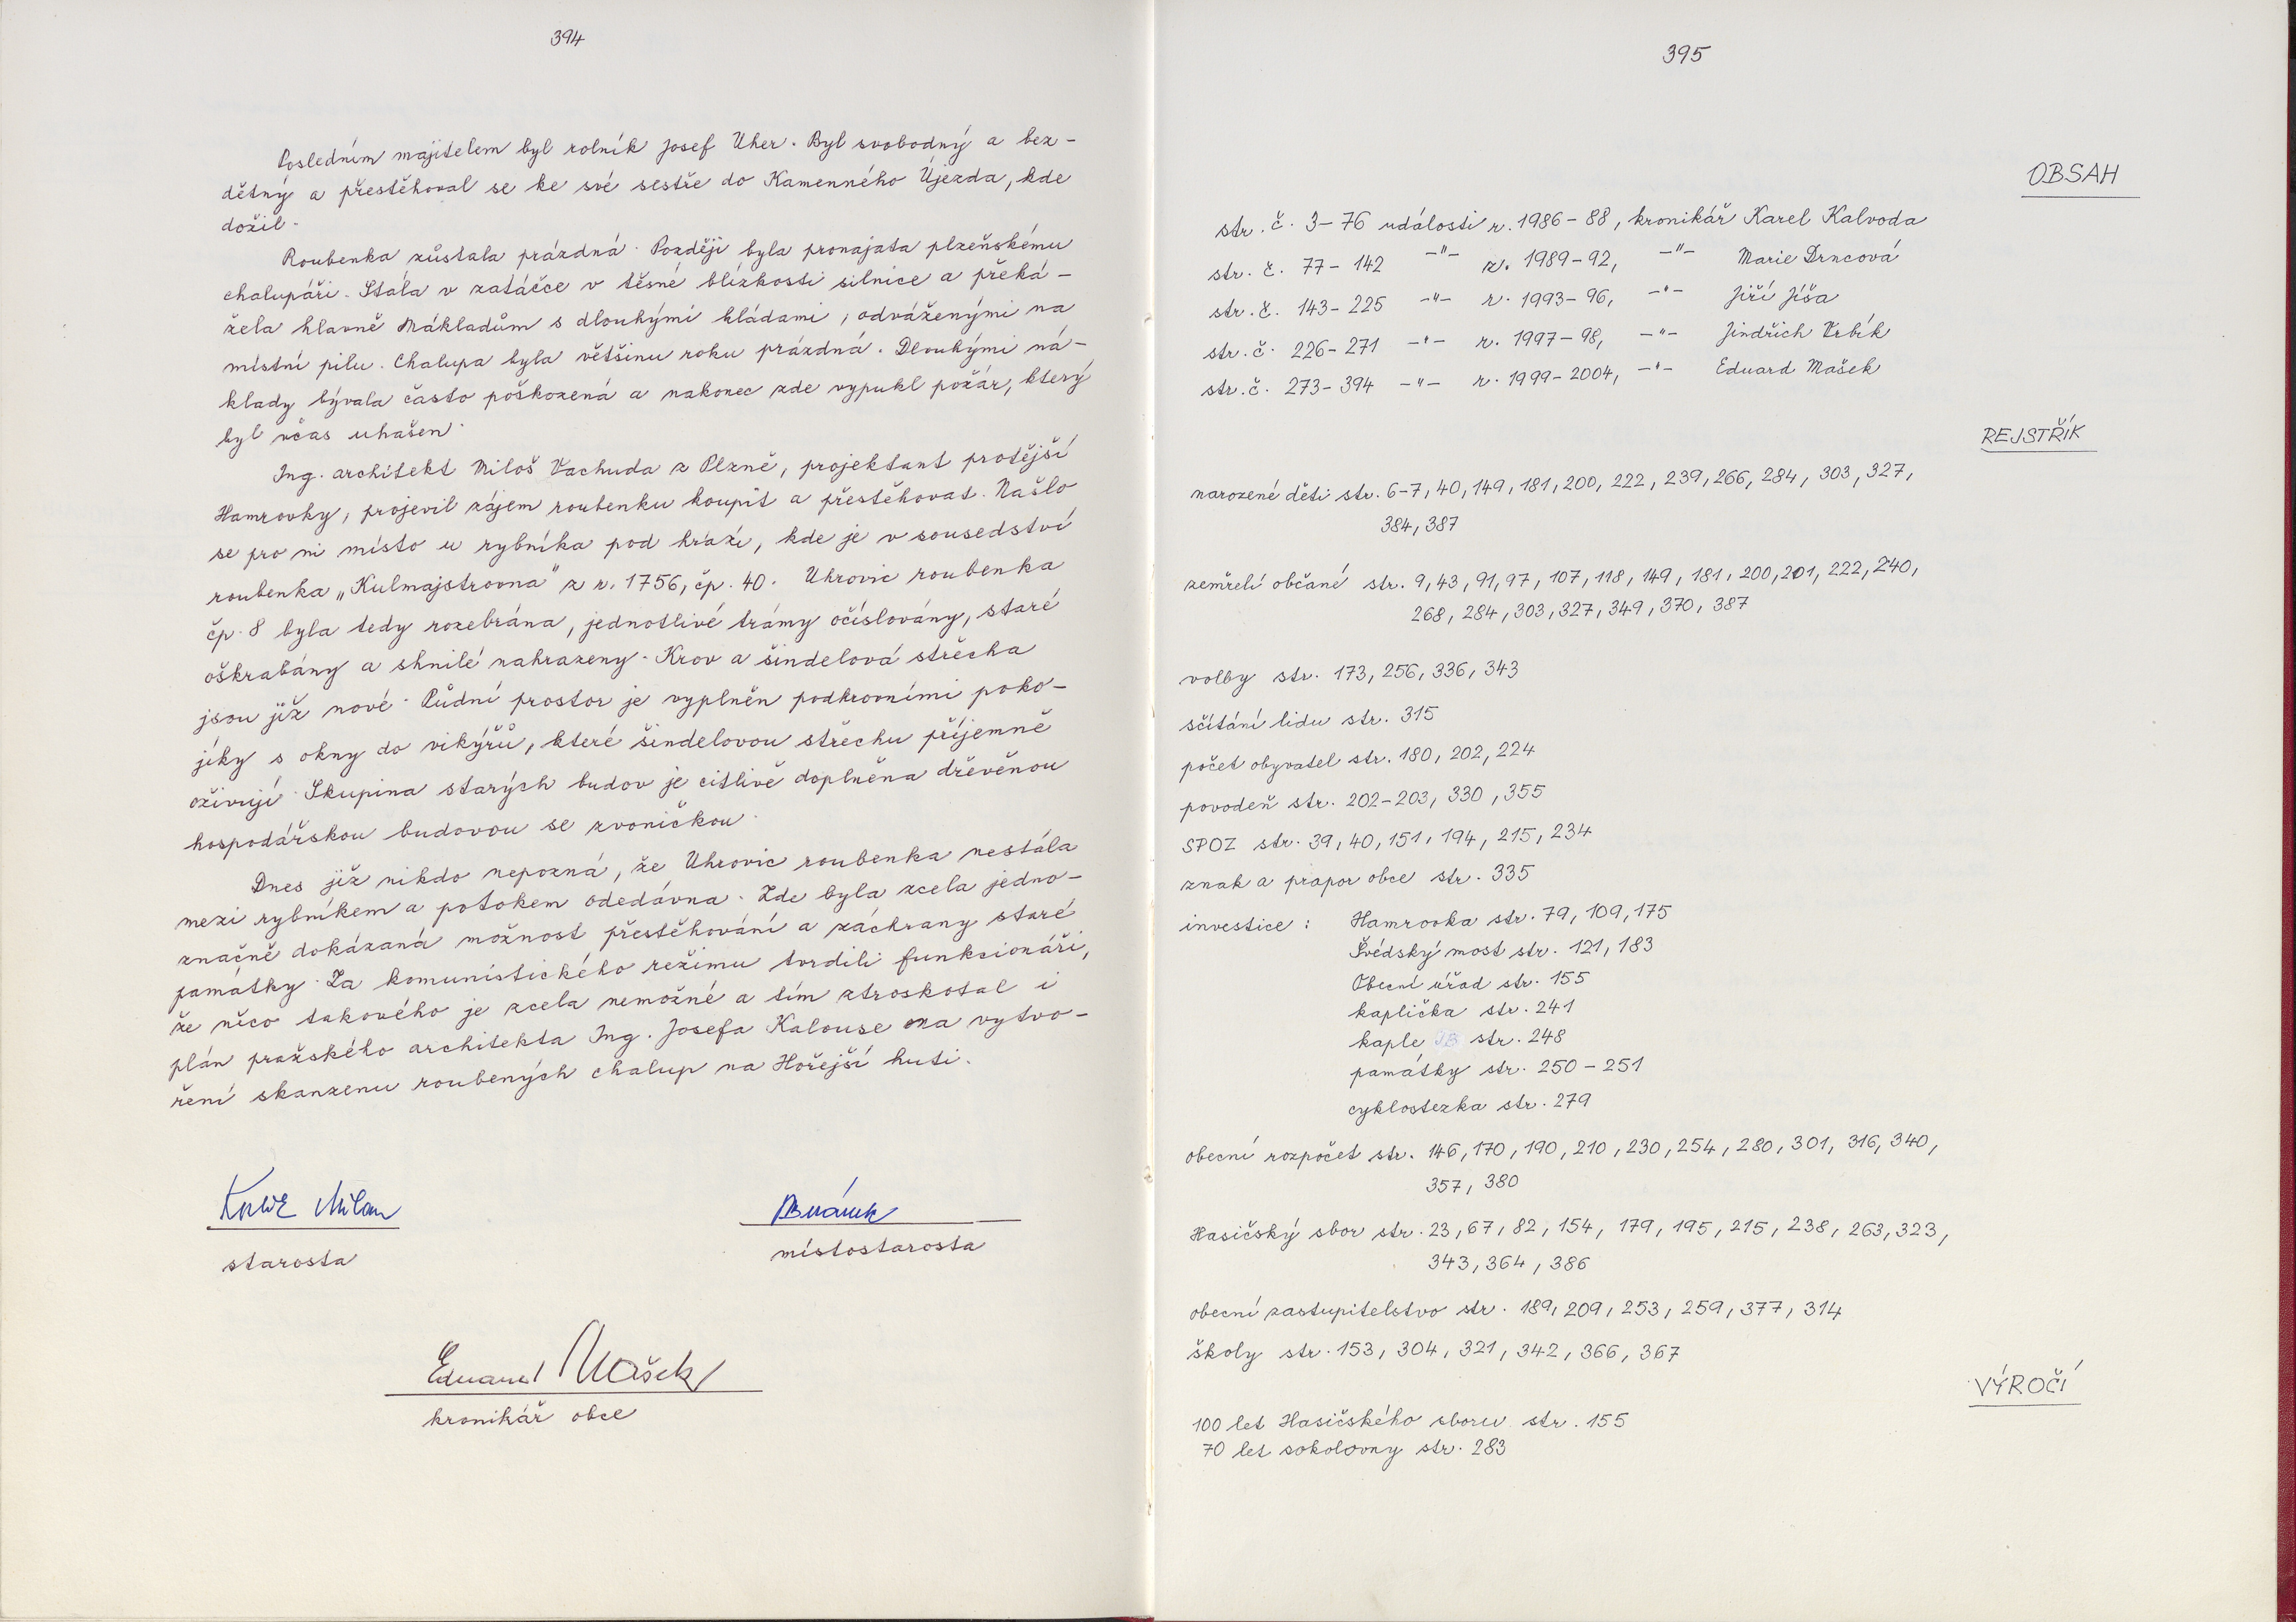 394
Posledním majitelem byl rolník Josef Uher. Byl svobodný a bez-
dětný a přestěhoval se ke své sestře do Kamenného Újezda, kde
dožil.
Roubenka zůstala prázdná. Později byla pronajata plzeňskému
chalupáři. Stála v zatáčce v těsné blízkosti silnice a překá-
žela hlavně nákladům s dlouhými kládami, odváženými na
místní pilu. Chalupa byla většinu roku prázdná. Dlouhými ná-
klady bývala často poškozená a nakonec zde vypukl požár, který
byl včas uhašen.
Ing. architekt Miloš Vachuda z Plzně, projektant protější
Hamrovky, projevil zájem roubenku koupit a přestěhovat. Našlo
se pro ni místo u rybníka pod hrází, kde je v sousedství
roubenka „Kulmajstrovna" z r. 1756, čp. 40. Uhrovic roubenka
čp. 8 byla tedy rozebrána, jednotlivé trámy očíslovány, staré
oškrabány a shnilé nahrazeny. Krov a šindelová střecha
jsou již nové. Půdní prostor je vyplněn podkrovními poko-
jíky s okny do vikýřů, které šindelovou střechu příjemně
oživují. Skupina starých budov je citlivě doplněna dřevěnou
hospodářskou budovou se zvoničkou.
Dnes již nikdo nepozná, že Uhrovic roubenka nestála
mezi rybníkem a potokem odedávna. Zde byla zcela jedno-
značně dokázaná možnost přestěhování a záchrany staré
památky. Za komunistického režimu tvrdili funkcionáři,
že něco takového je zcela nemožné a tím ztroskotal i
plán pražského architekta Ing. Josefa Kalouse na vytvo-
ření skanzenu roubených chalup na Hořejší huti.
Milan
starosta
místostarosta
Eduard Mašek
kronikář obce
395
OBSAH
str. č. 3-76 události r. 1986-88, kronikář Karel Kalvoda
str. č. 77-142 -"- r. 1989-92, -"- Marie Drncová
str. č. 143-225 -"- r. 1993-96, -"- Jiří Jíša
str. č. 226-271 -"- r. 1997-98, -"- Jindřich Vrbík
str. č. 273-394 -"- r. 1999-2004, -"- Eduard Mašek
REJSTŘÍK
narozené děti str. 6-7, 40, 149, 181, 200, 222, 239, 266, 284, 303, 327,
384, 387
zemřelí občané str. 9, 43, 91, 97, 107, 118, 149, 181, 200, 201, 222, 240,
268, 284, 303, 327, 349, 370, 387
volby str. 173, 256, 336, 343
sčítání lidu str. 315
počet obyvatel str. 180, 202, 224
povodeň str. 202-203, 330, 355
SPOZ str. 39, 40, 151, 194, 215, 234
znak a prapor obce str. 335
investice : Hamrovka str. 79, 109, 175
Švédský most str. 121, 183
Obecní úřad str. 155
kaplička str. 241
kaple str. 248
památky str. 250-251
cyklostezka str. 279
obecní rozpočet str. 146, 170, 190, 210, 230, 254, 280, 301, 316, 340,
357, 380
Hasičský sbor str. 23, 67, 82, 154, 179, 195, 215, 238, 263, 323,
343, 364, 386
obecní zastupitelstvo str. 189, 209, 253, 259, 377, 314
školy str. 153, 304, 321, 342, 366, 367
VÝROČÍ
100 let Hasičského sboru str. 155
70 let sokolovny str. 283